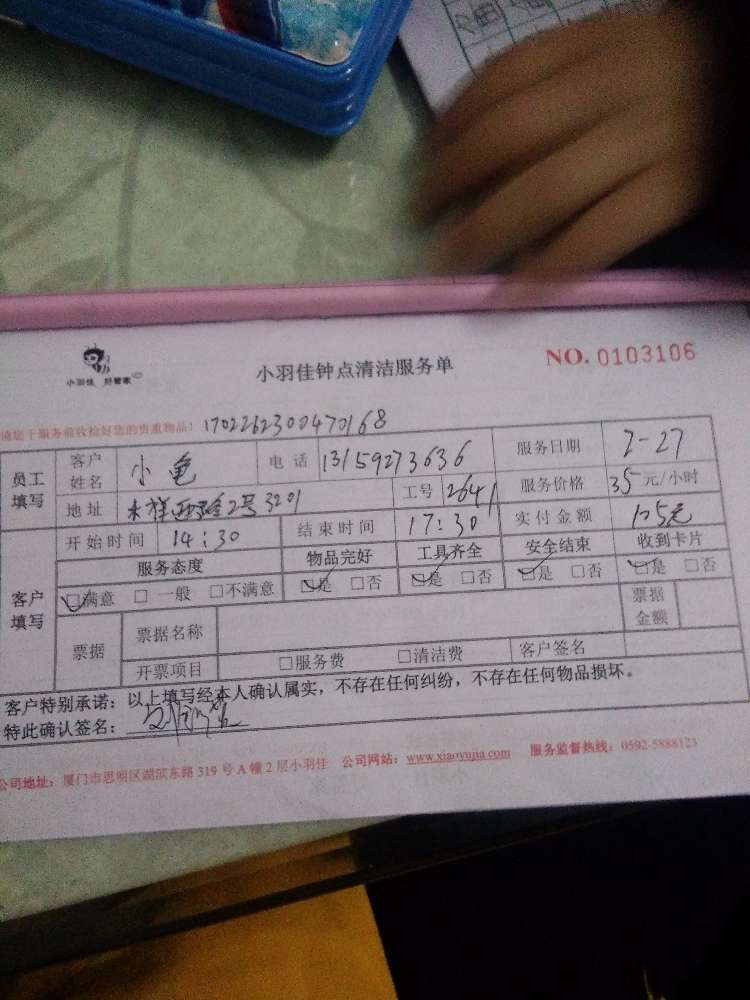 小羽佳 好管家
小羽佳钟点清洁服务单
NO. 0103106
请您于服务前收检好您的贵重物品! 170226230047​0168
员工填写 客户姓名 小龟 电话 13159273636 服务日期 2-27
地址 2号3201 工号 2641 服务价格 35元/小时
客户填写 开始时间 14:30 结束时间 17:30 实付金额 105元
服务态度 物品完好 工具齐全 安全结束 收到卡片
☑满意 □一般 □不满意 ☑是 □否 ☑是 □否 ☑是 □否 ☑是 □否
票据 票据名称 票据金额
开票项目 □服务费 □清洁费 客户签名
客户特别承诺：以上填写经本人确认属实，不存在任何纠纷，不存在任何物品损坏。
特此确认签名：
公司地址：厦门市思明区湖滨东路319号A幢2层小羽佳 公司网站：www.xiaoyujia.com 服务监督热线：0592-5888123